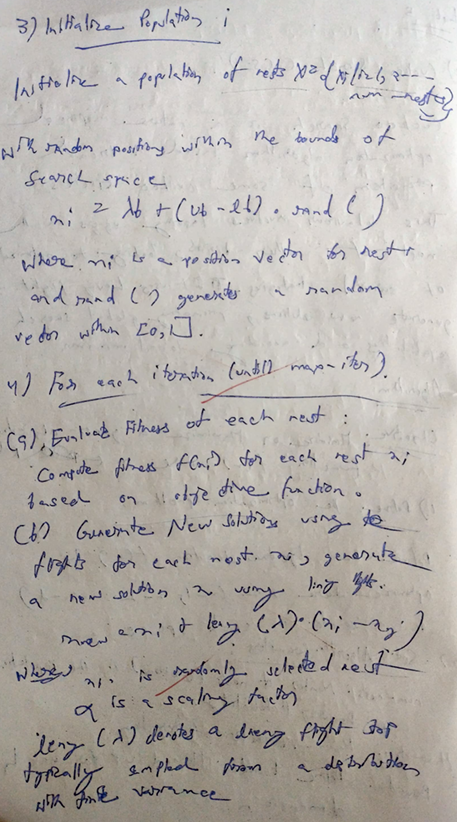 3) Initialize Population i
Initialize a population of nests X = {Xi | i=1, 2 ----
num - nests}
with random positions within the bounds of
search space
xi = lb + (ub - lb) . rand ( )
where xi is a position vector for nest i
and rand ( ) generates a random
vector within [0,1].
4) For each iteration (until max-iter).
(a) Evaluate Fitness of each nest :
Compute fitness f(xi) for each nest xi
based on objective function.
(b) Generate New solutions using
flights for each nest xi, generate
a new solution using
xnew = xi + levy (λ) . (xi - xj)
where xi is randomly selected nest
α is a scaling factor
levy (λ) denotes a levy flight step
typically sampled from a distribution
with finite variance